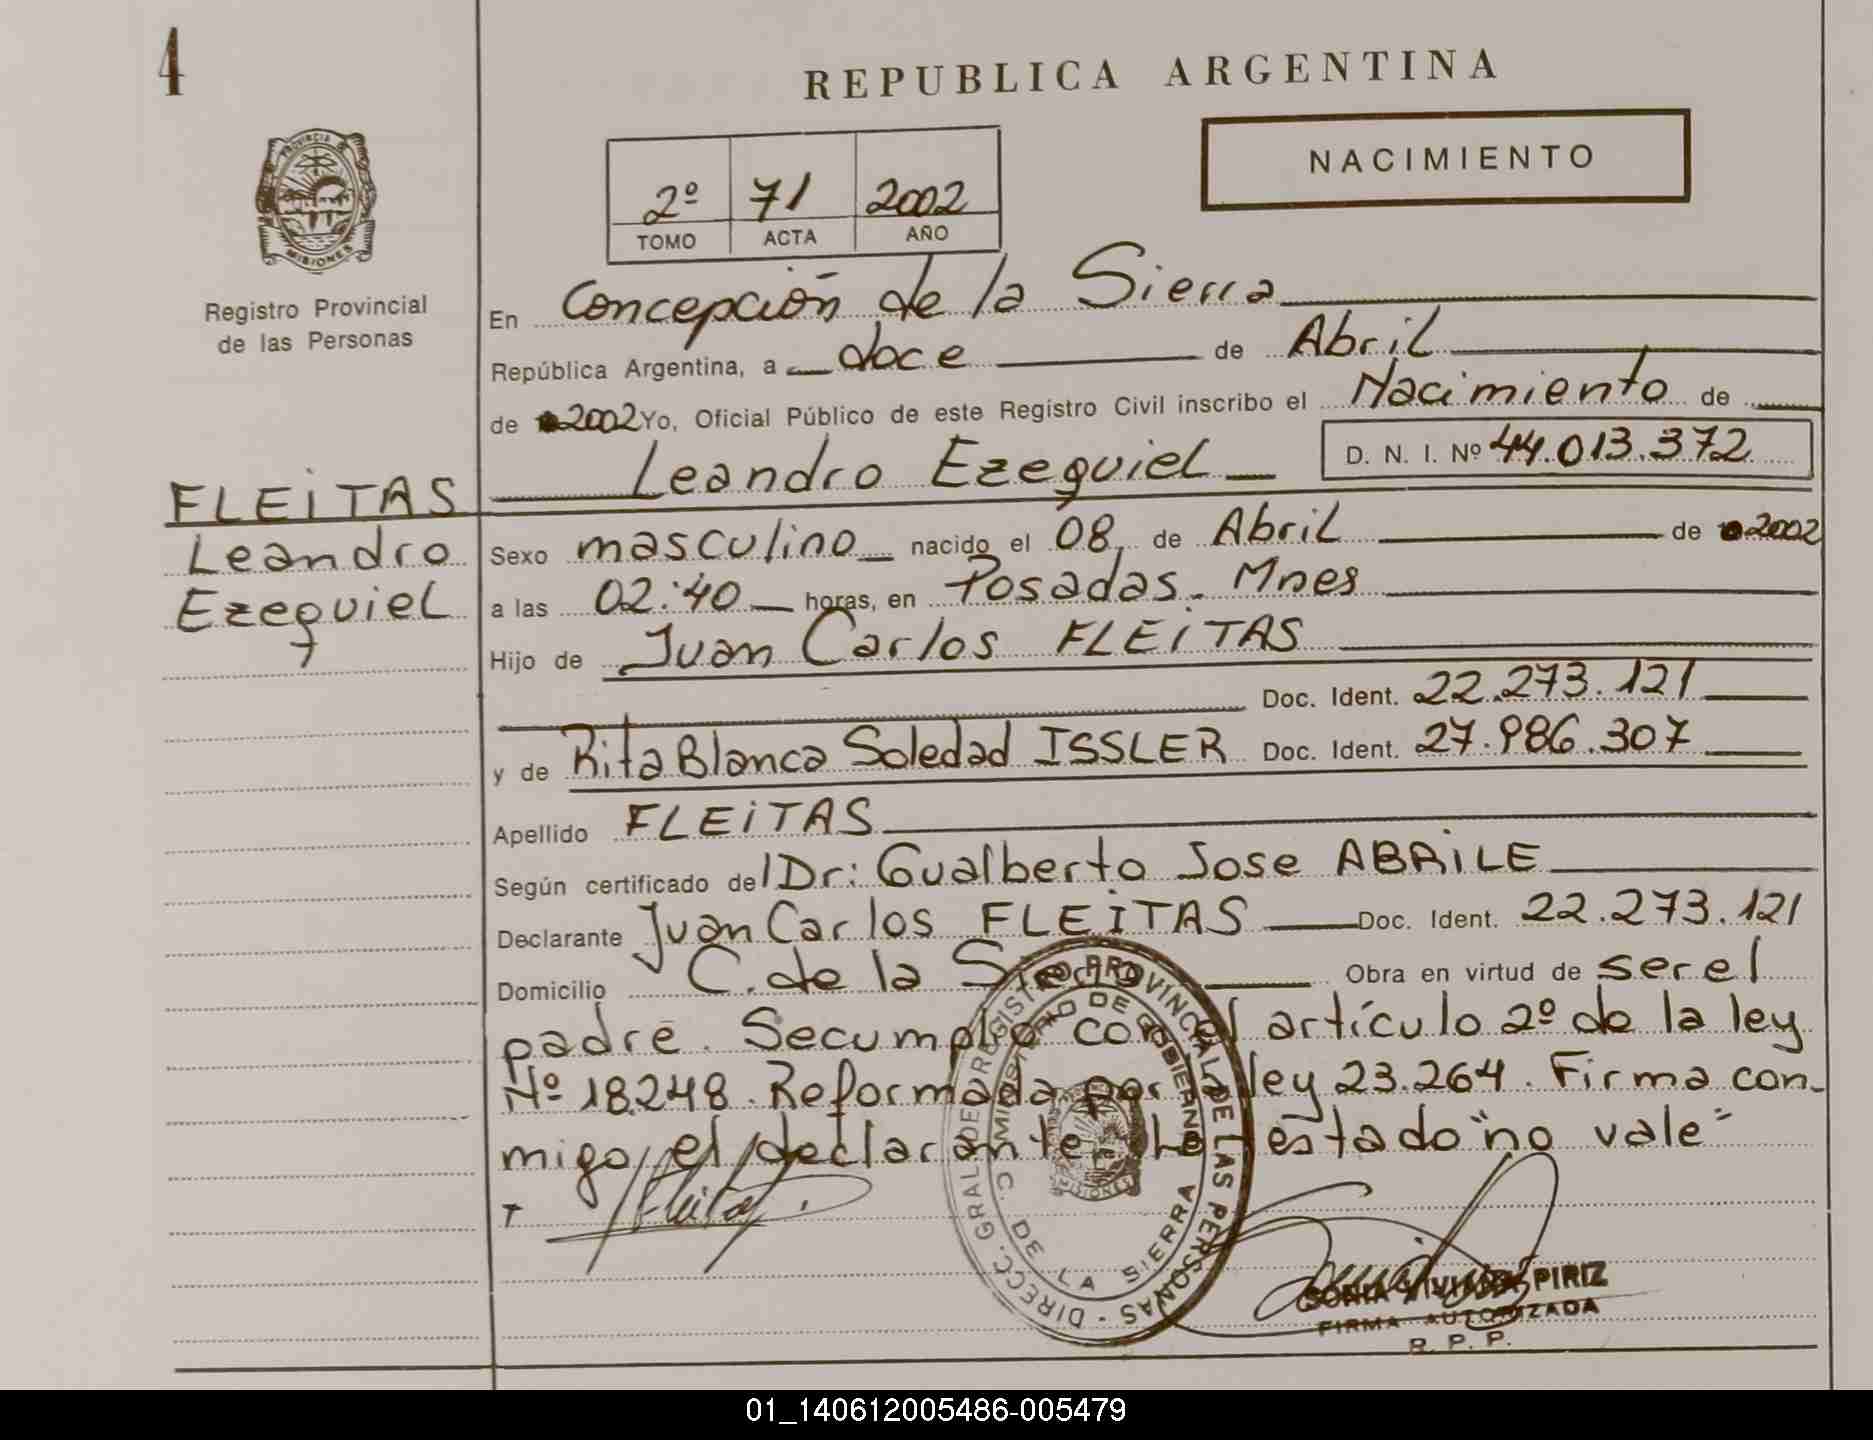 4
REPUBLICA ARGENTINA
NACIMIENTO
PROVINCIA DE
MISIONES
Registro Provincial
de las Personas
2º 71 2002
TOMO ACTA AÑO
En Concepción de la Sierra
República Argentina, a doce de Abril
de 2002 Yo, Oficial Público de este Registro Civil inscribo el Nacimiento de
Leandro Ezequiel D. N. I. Nº 44.013.372
FLEITAS
Leandro
Ezequiel
Sexo masculino nacido el 08 de Abril de 2002
a las 02:40 horas, en Posadas. Mnes
Hijo de Juan Carlos FLEITAS
Doc. Ident. 22.273.121
y de Rita Blanca Soledad ISSLER Doc. Ident. 27.986.307
Apellido FLEITAS
Según certificado del Dr: Gualberto Jose ABRILE
Declarante Juan Carlos FLEITAS Doc. Ident. 22.273.121
Domicilio C. de la Sierra Obra en virtud de ser el
padre. Se cumplio con el artículo 2º de la ley
Nº 18.248. Reformada por la ley 23.264. Firma con-
migo el declarante. Lo testado "no vale"
Fleitas
DIRECC. GRAL DE REGISTRO PROVINCIAL DE LAS PERSONAS
MINISTERIO DE GOBIERNO
C. DE LA SIERRA
MISIONES
SONIA VIVIANA PIRIZ
FIRMA AUTORIZADA
R. P. P.
01_140612005486-005479